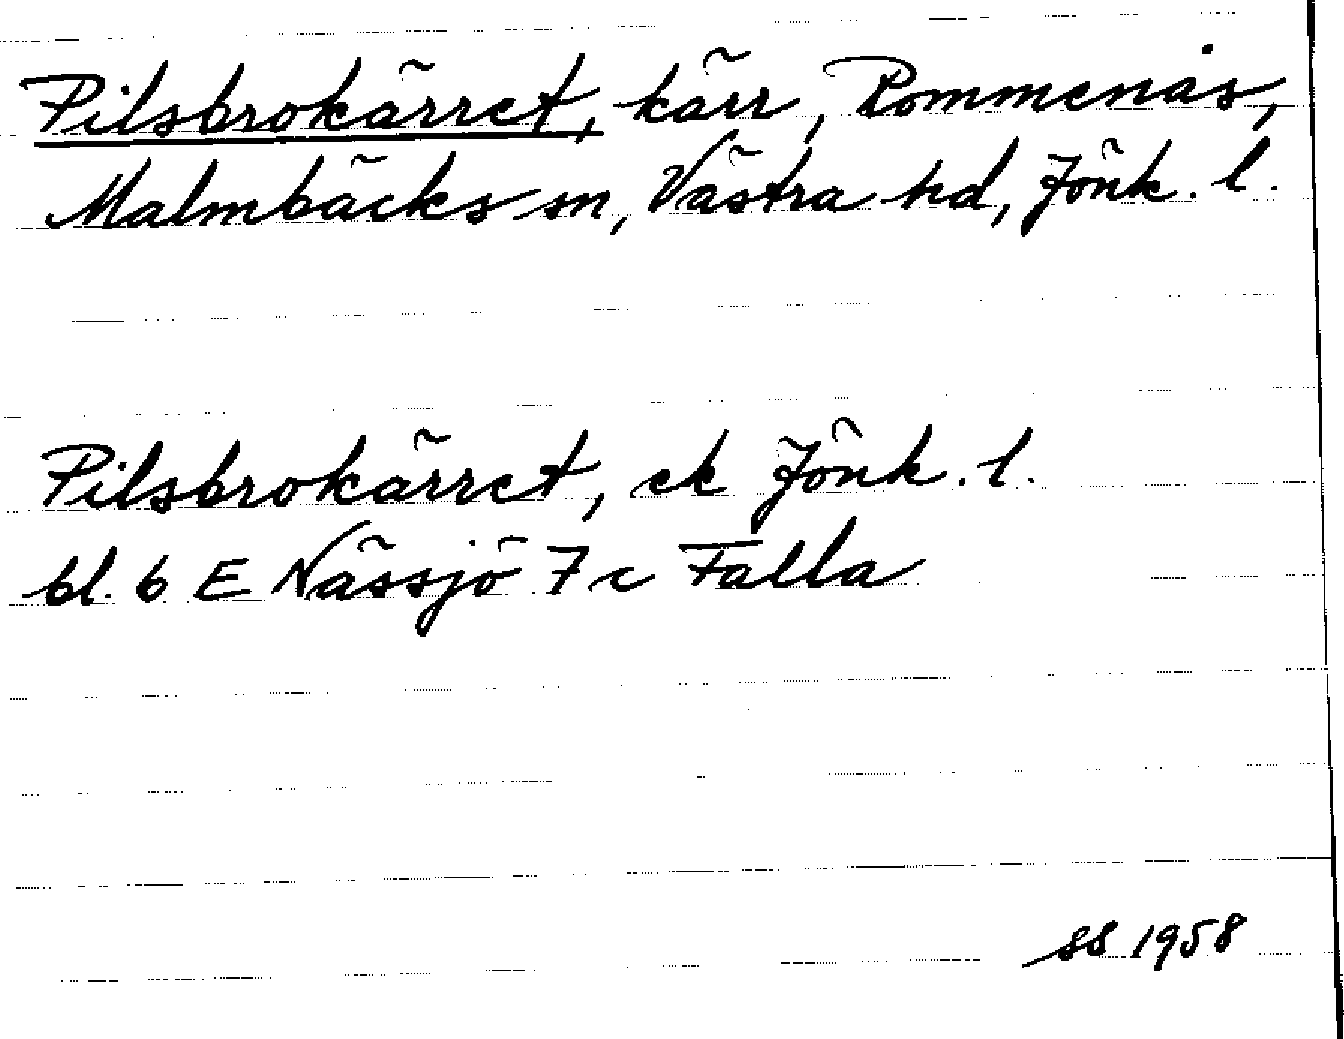 Pilsbrokärret, kärr, Rommenås,
Malmbäcks sn, Västra hd, Jönk. l.
Pilsbrokärret, ek Jönk. l.
bl. 6 E Nässjö 7 c Falla
SS 1958